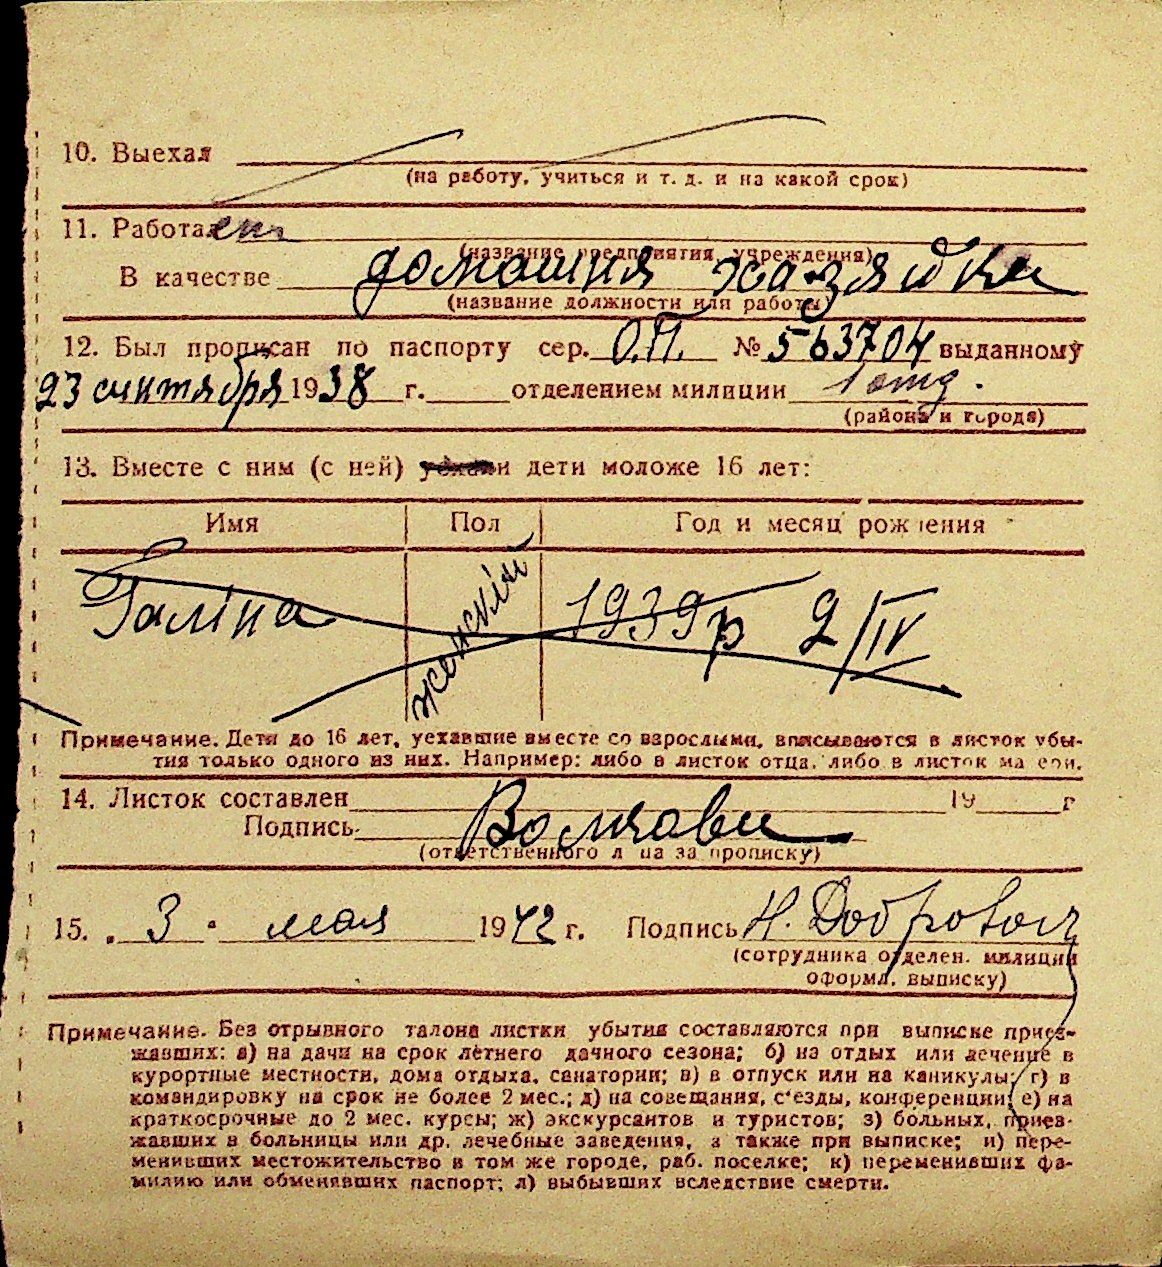 10. Выехал
(на работу, учиться и т. д. и на какой срок)
11. Работает
(название предприятия, учреждения)
В качестве домашня хазяйка
(название должности или работы)
12. Был прописан по паспорту сер. О.П. № 563704 выданному
23 сентября 1938 г. отделением милиции 1 отд.
(района и города)
13. Вместе с ним (с ней) уехали дети моложе 16 лет:
Имя Пол Год и месяц рождения
Галіна женскій 1939 р 9/IV
Примечание. Дети до 16 лет, уехавшие вместе со взрослыми, вписываются в листок убы-
тия только одного из них. Например: либо в листок отца, либо в листок матери.
14. Листок составлен 19 г
Подпись
(ответственного лица за прописку)
15. 3 мая 1942 г. Подпись Н. Доброволь
(сотрудника отделен. милиции
оформл. выписку)
Примечание. Без отрывного талона листки убытия составляются при выписке приез-
жавших: а) на дачи на срок летнего дачного сезона; б) на отдых или лечение в
курортные местности, дома отдыха, санатории; в) в отпуск или на каникулы; г) в
командировку на срок не более 2 мес.; д) на совещания, с'езды, конференции; е) на
краткосрочные до 2 мес. курсы; ж) экскурсантов и туристов; з) больных, приез-
жавших в больницы или др. лечебные заведения, а также при выписке; и) пере-
менивших местожительство в том же городе, раб. поселке; к) переменивших фа-
милию или обменявших паспорт; л) выбывших вследствие смерти.